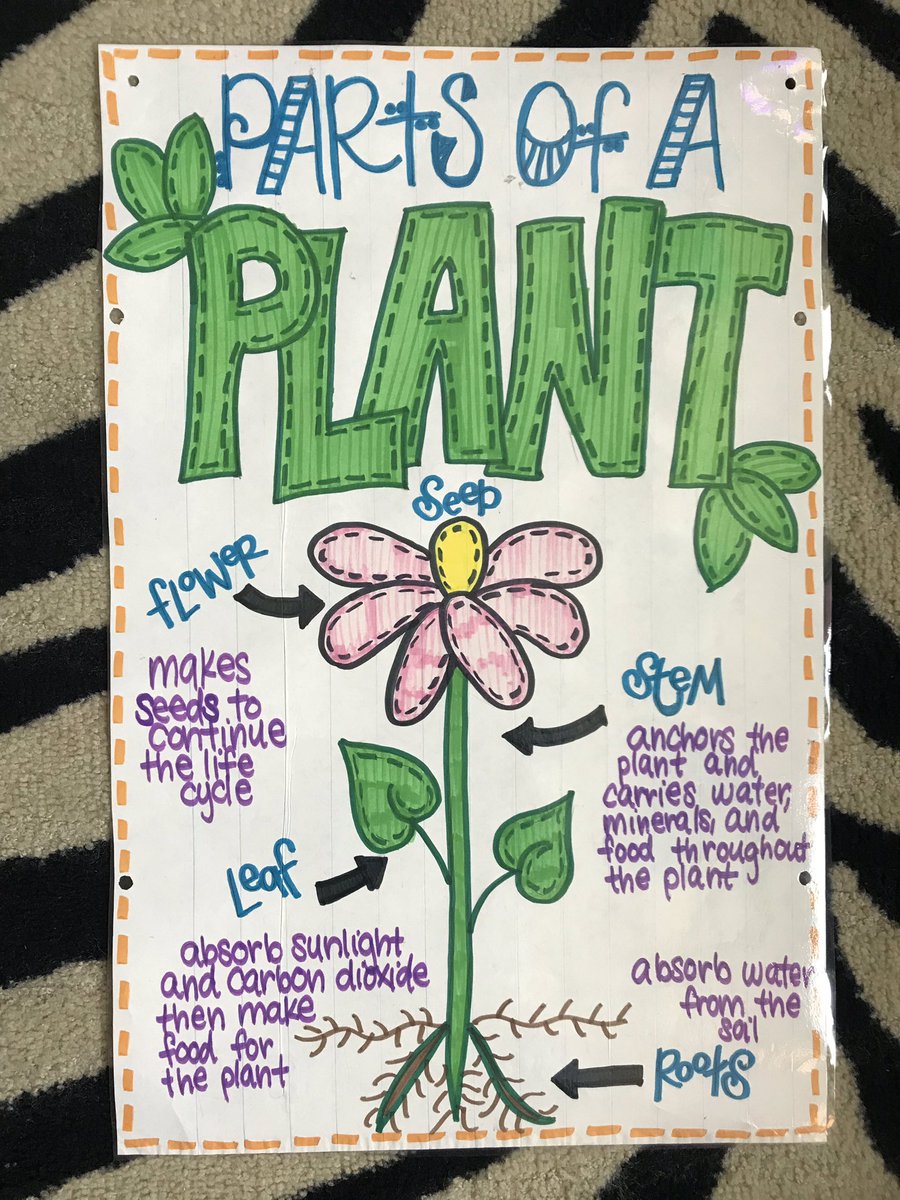 PARts Of A
PLANT
Seed
flower
makes
seeds to
continue
the life
cycle
Stem
anchors the
plant and
carries water,
minerals, and
food throughout
the plant
Leaf
absorb sunlight
and carbon dioxide
then make
food for
the plant
absorb water
from the
soil
Roots